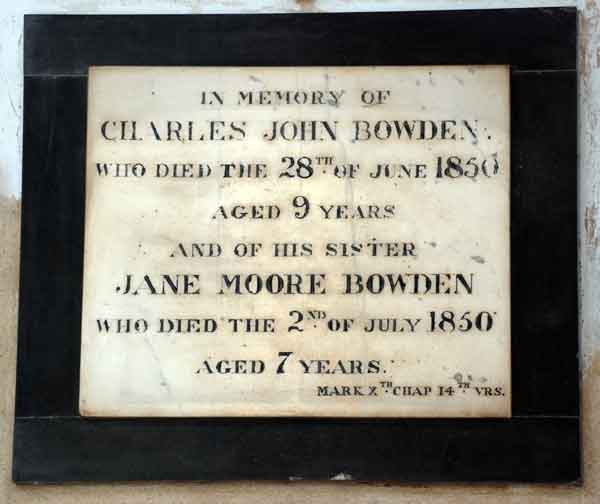 IN MEMORY OF
CHARLES JOHN BOWDEN.
WHO DIED THE 28TH OF JUNE 1850
AGED 9 YEARS
AND OF HIS SISTER
JANE MOORE BOWDEN
WHO DIED THE 2ND OF JULY 1850
AGED 7 YEARS.
MARK XTH CHAP 14TH VRS.